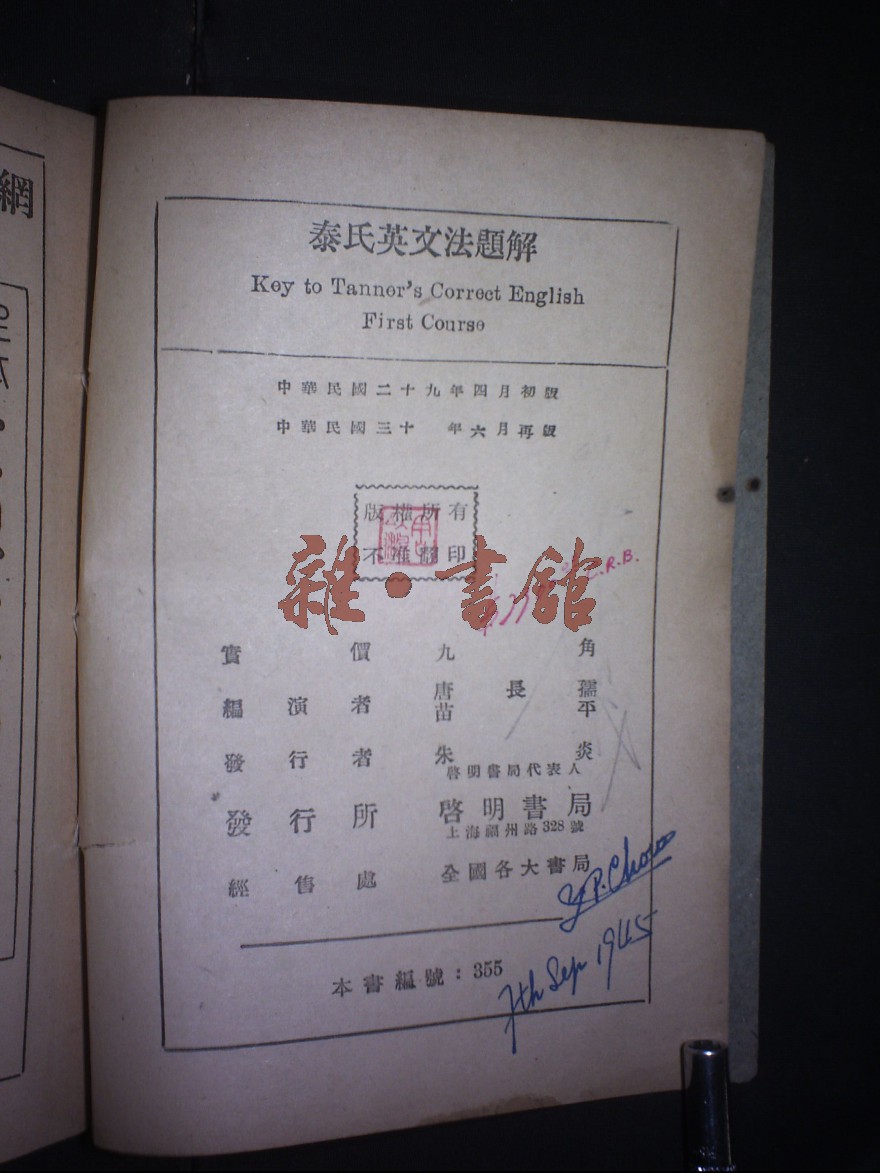 網
泰氏英文法題解
Key to Tanner's Correct English
First Course
中華民國二十九年四月初版
中華民國三十 年六月再版
版權所有
不准翻印
雜·書館
C.R.B.
實價九角
編演者 唐長孺
苗平
發行者 朱炎
啓明書局代表人
發行所 啓明書局
上海福州路328號
經售處 全國各大書局
Y.P.Chow
7th Sep 1945
本書編號：355